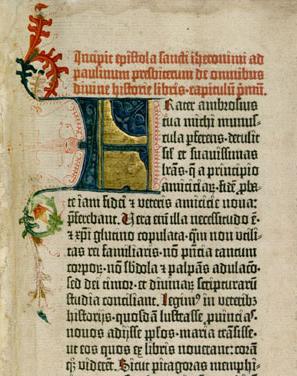 Incipit epistola sancti iheronimi ad
paulinum presbiterum de omnibus
divine historie libris. capitulū pmū.
Frater ambrosius
tua michi munus-
cula pferens. detulit
sil' et suavissimas
lrās. q̄ a principio
amiciciar. fidē pba-
te iam fidei et veteris amicicie nova:
pferebant. Vera eni illa necessitudo ē.
et xpi glutino copulata. qm non utili-
tas rei familiaris. nō pncia tantum
corpor. nō sbdola et palpās adulaco.
sed dei timor. et divinar scripturarū
studia conciliant. Legim9 in veterib3
historijs. quosdā lustrasse puincias.
novos adijsse pplos. maria trāsisse.
ut eos quos ex libris noverant: corā
q3 viderēt. Sicut pitagoras memphi-